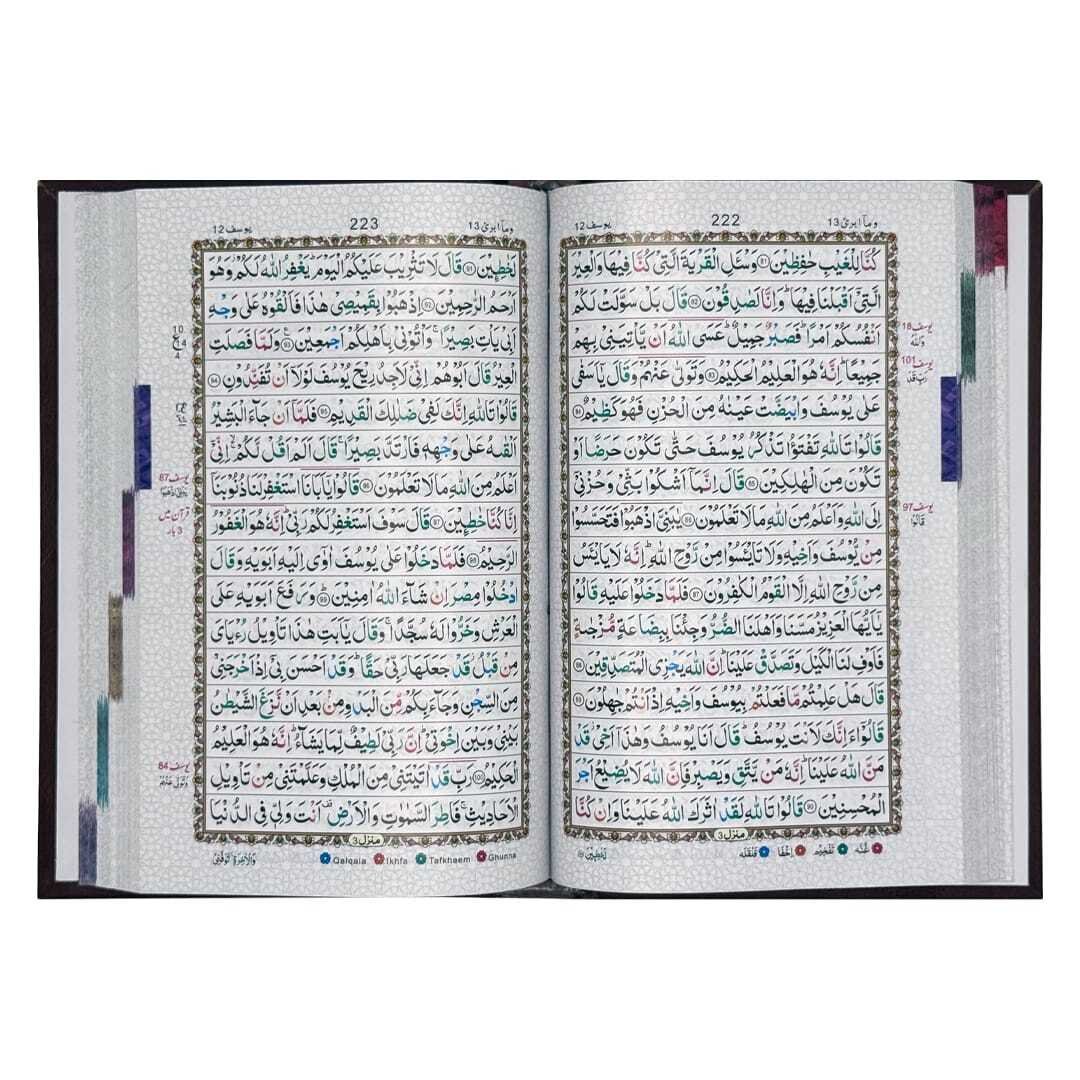 وما ابرئ 13
222
يوسف 12
كُنَّا لِلْغَيْبِ حٰفِظِيْنَ ﴿81﴾ وَسْـَٔلِ الْقَرْيَةَ الَّتِيْ كُنَّا فِيْهَا وَالْعِيْرَ
الَّتِيْٓ اَقْبَلْنَا فِيْهَا ؕ وَاِنَّا لَصٰدِقُوْنَ ﴿82﴾ قَالَ بَلْ سَوَّلَتْ لَكُمْ
اَنْفُسُكُمْ اَمْرًا ؕ فَصَبْرٌ جَمِيْلٌ ؕ عَسَى اللّٰهُ اَنْ يَّاْتِيَنِيْ بِهِمْ
جَمِيْعًا ؕ اِنَّهٗ هُوَ الْعَلِيْمُ الْحَكِيْمُ ﴿83﴾ وَتَوَلّٰى عَنْهُمْ وَقَالَ يٰۤاَسَفٰى
عَلٰى يُوْسُفَ وَابْيَضَّتْ عَيْنٰهُ مِنَ الْحُزْنِ فَهُوَ كَظِيْمٌ ﴿84﴾
قَالُوْا تَاللّٰهِ تَفْتَؤُا تَذْكُرُ يُوْسُفَ حَتّٰى تَكُوْنَ حَرَضًا اَوْ
تَكُوْنَ مِنَ الْهٰلِكِيْنَ ﴿85﴾ قَالَ اِنَّمَاۤ اَشْكُوْا بَثِّيْ وَحُزْنِيْٓ
اِلَى اللّٰهِ وَاَعْلَمُ مِنَ اللّٰهِ مَا لَا تَعْلَمُوْنَ ﴿86﴾ يٰبَنِيَّ اذْهَبُوْا فَتَحَسَّسُوْا
مِنْ يُّوْسُفَ وَاَخِيْهِ وَلَا تَايْـَٔسُوْا مِنْ رَّوْحِ اللّٰهِ ؕ اِنَّهٗ لَا يَايْـَٔسُ
مِنْ رَّوْحِ اللّٰهِ اِلَّا الْقَوْمُ الْكٰفِرُوْنَ ﴿87﴾ فَلَمَّا دَخَلُوْا عَلَيْهِ قَالُوْا
يٰۤاَيُّهَا الْعَزِيْزُ مَسَّنَا وَاَهْلَنَا الضُّرُّ وَجِئْنَا بِبِضَاعَةٍ مُّزْجٰىةٍ
فَاَوْفِ لَنَا الْكَيْلَ وَتَصَدَّقْ عَلَيْنَا ؕ اِنَّ اللّٰهَ يَجْزِي الْمُتَصَدِّقِيْنَ ﴿88﴾
قَالَ هَلْ عَلِمْتُمْ مَّا فَعَلْتُمْ بِيُوْسُفَ وَاَخِيْهِ اِذْ اَنْتُمْ جٰهِلُوْنَ ﴿89﴾
قَالُوْٓا ءَاِنَّكَ لَاَنْتَ يُوْسُفُ ؕ قَالَ اَنَا يُوْسُفُ وَهٰذَآ اَخِيْ ؗ قَدْ
مَنَّ اللّٰهُ عَلَيْنَا ؕ اِنَّهٗ مَنْ يَّتَّقِ وَيَصْبِرْ فَاِنَّ اللّٰهَ لَا يُضِيْعُ اَجْرَ
الْمُحْسِنِيْنَ ﴿90﴾ قَالُوْا تَاللّٰهِ لَقَدْ اٰثَرَكَ اللّٰهُ عَلَيْنَا وَاِنْ كُنَّا
منزل 3
غُنّه
تَفْخِيْم
اِخْفَا
قَلْقَلَه
لَخٰطِـِٕيْنَ
يوسف 18
وَاللّٰهُ
يوسف 101
رَبِّ قَدْ
يوسف 97
قَالُوْا
وما ابرئ 13
223
يوسف 12
لَخٰطِـِٕيْنَ ﴿91﴾ قَالَ لَا تَثْرِيْبَ عَلَيْكُمُ الْيَوْمَ ؕ يَغْفِرُ اللّٰهُ لَكُمْ ؗ وَهُوَ
اَرْحَمُ الرّٰحِمِيْنَ ﴿92﴾ اِذْهَبُوْا بِقَمِيْصِيْ هٰذَا فَاَلْقُوْهُ عَلٰى وَجْهِ
اَبِيْ يَاْتِ بَصِيْرًا ۚ وَاْتُوْنِيْ بِاَهْلِكُمْ اَجْمَعِيْنَ ﴿93﴾ وَلَمَّا فَصَلَتِ
الْعِيْرُ قَالَ اَبُوْهُمْ اِنِّيْ لَاَجِدُ رِيْحَ يُوْسُفَ لَوْلَاۤ اَنْ تُفَنِّدُوْنِ ﴿94﴾
قَالُوْا تَاللّٰهِ اِنَّكَ لَفِيْ ضَلٰلِكَ الْقَدِيْمِ ﴿95﴾ فَلَمَّاۤ اَنْ جَآءَ الْبَشِيْرُ
اَلْقٰىهُ عَلٰى وَجْهِهٖ فَارْتَدَّ بَصِيْرًا ۚ قَالَ اَلَمْ اَقُلْ لَّكُمْ ۙ اِنِّيْٓ
اَعْلَمُ مِنَ اللّٰهِ مَا لَا تَعْلَمُوْنَ ﴿96﴾ قَالُوْا يٰۤاَبَانَا اسْتَغْفِرْ لَنَا ذُنُوْبَنَاۤ
اِنَّا كُنَّا خٰطِـِٕيْنَ ﴿97﴾ قَالَ سَوْفَ اَسْتَغْفِرُ لَكُمْ رَبِّيْ ؕ اِنَّهٗ هُوَ الْغَفُوْرُ
الرَّحِيْمُ ﴿98﴾ فَلَمَّا دَخَلُوْا عَلٰى يُوْسُفَ اٰوٰۤى اِلَيْهِ اَبَوَيْهِ وَقَالَ
ادْخُلُوْا مِصْرَ اِنْ شَآءَ اللّٰهُ اٰمِنِيْنَ ﴿99﴾ وَرَفَعَ اَبَوَيْهِ عَلَى
الْعَرْشِ وَخَرُّوْا لَهٗ سُجَّدًا ۚ وَقَالَ يٰۤاَبَتِ هٰذَا تَاْوِيْلُ رُءْيَايَ
مِنْ قَبْلُ ؗ قَدْ جَعَلَهَا رَبِّيْ حَقًّا ؕ وَقَدْ اَحْسَنَ بِيْٓ اِذْ اَخْرَجَنِيْ
مِنَ السِّجْنِ وَجَآءَ بِكُمْ مِّنَ الْبَدْوِ مِنْۢ بَعْدِ اَنْ نَّزَغَ الشَّيْطٰنُ
بَيْنِيْ وَبَيْنَ اِخْوَتِيْ ؕ اِنَّ رَبِّيْ لَطِيْفٌ لِّمَا يَشَآءُ ؕ اِنَّهٗ هُوَ الْعَلِيْمُ
الْحَكِيْمُ ﴿100﴾ رَبِّ قَدْ اٰتَيْتَنِيْ مِنَ الْمُلْكِ وَعَلَّمْتَنِيْ مِنْ تَاْوِيْلِ
الْاَحَادِيْثِ ۚ فَاطِرَ السَّمٰوٰتِ وَالْاَرْضِ ۫ اَنْتَ وَلِيّٖ فِي الدُّنْيَا
منزل 3
Qalqala
Ikhfa
Tafkhaem
Ghunna
وَالْاٰخِرَةِ تَوَفَّنِيْ
10
ع 4
4
يوسف 87
قرآن میں
3 بار
يوسف 84
وَتَوَلّٰى عَنْهُمْ